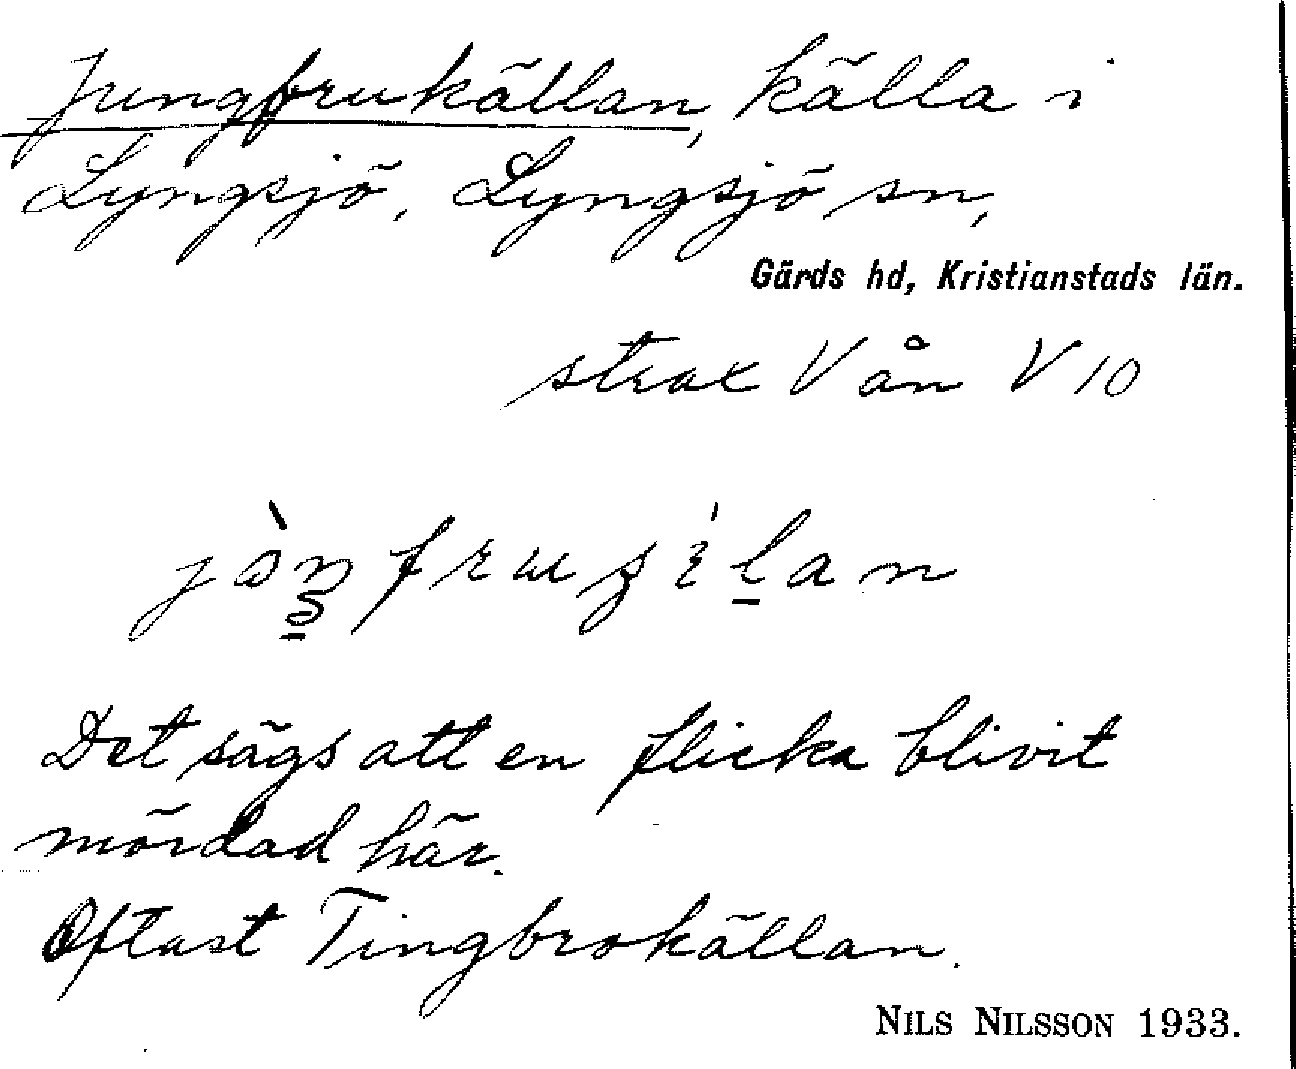 Jungfrukällan, källa i
Lyngsjö, Lyngsjö sn,
Gärds hd, Kristianstads län.
strax V ån V 10
Det sägs att en flicka blivit
mördad här.
Oftast Tingbrokällan.
NILS NILSSON 1933.